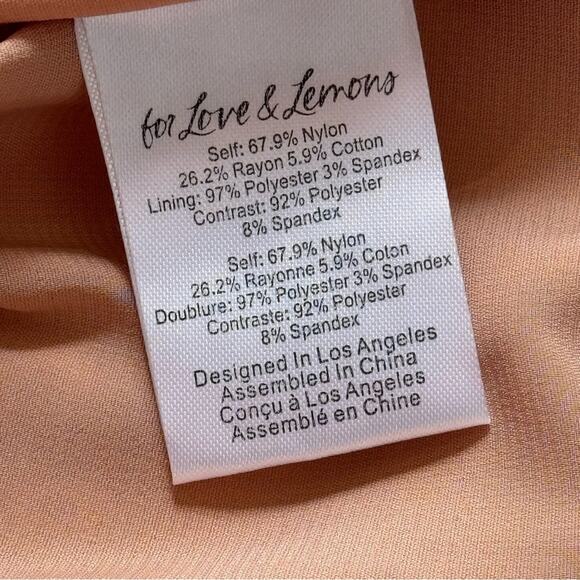 for Love & Lemons
Self: 67.9% Nylon
26.2% Rayon 5.9% Cotton
Lining: 97% Polyester 3% Spandex
Contrast: 92% Polyester
8% Spandex
Self: 67.9% Nylon
26.2% Rayonne 5.9% Coton
Doublure: 97% Polyester 3% Spandex
Contraste: 92% Polyester
8% Spandex
Designed In Los Angeles
Assembled In China
Conçu à Los Angeles
Assemblé en Chine